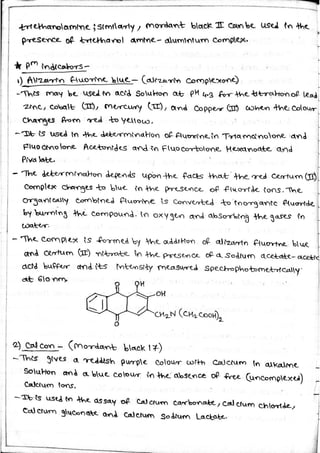 triethanolamine ; similarly , mordant black II can be used in the
presence of triethanol amine - aluminium complex.
* pm Indicators -
1) Alizarin fluorine blue - (alizarin complexone)
- This may be used in acid solution at pH 4.3 for the titration of lead
zinc, cobalt (II), mercury (II), and Copper (II) when the colour
Changes from red to yellow.
- It is used in the determination of fluorine in Triamcinolone and
Fluocinolone Acetonides and in Fluocortolone Hexanoate and
Pivalate.
- The determination depends upon the facts that the red Cerium (III)
Complex changes to blue in the presence of fluoride ions. The
organically combined fluorine is converted to inorganic fluoride
by burning the compound in oxygen and absorbing the gases in
water.
- The complex is formed by the addition of alizarin fluorine blue
and Cerium (III) nitrate in the presence of a sodium acetate - acetic
acid buffer and its intensity measured spectrophotometrically
at 610 nm,
O OH
OH
CH₂N (CH₂ COOH)₂
O
2) Calcon - (mordant black 17)
- This gives a reddish purple colour with Calcium in alkaline
Solution and a blue colour in the absence of free (uncomplexed)
Calcium ions.
- It is used in the assay of Calcium Carbonate, Calcium chloride,
Calcium gluconate and Calcium Sodium Lactate.